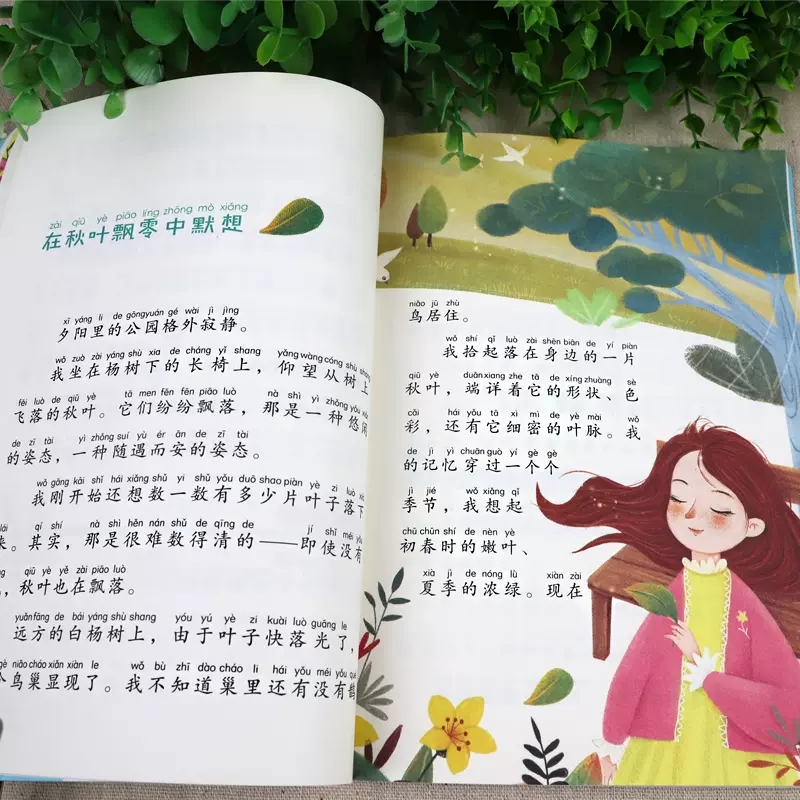 zài qiū yè piāo líng zhōng mò xiǎng
在秋叶飘零中默想
xī yáng li de gōngyuán gé wài jì jìng
夕阳里的公园格外寂静。
wǒ zuò zài yáng shù xia de cháng yǐ shang yǎng wàng cóng shù shang
我坐在杨树下的长椅上，仰望从树上
fēi luò de qiū yè tā men fēn fēn piāo luò nà shì yì zhǒng yōu xián
飞落的秋叶。它们纷纷飘落，那是一种悠闲
de zī tài yì zhǒng suí yù ér ān de zī tài
的姿态，一种随遇而安的姿态。
wǒ gāng kāi shǐ hái xiǎng shǔ yi shǔ yǒu duō shao piàn yè zi luò xià
我刚开始还想数一数有多少片叶子落下
lái qí shí nà shì hěn nán shǔ de qīng de jí shǐ méi yǒu
来。其实，那是很难数得清的——即使没有
qiū yè yě zài piāo luò
，秋叶也在飘落。
yuǎn fāng de bái yáng shù shang yóu yú yè zi kuài luò guāng le
远方的白杨树上，由于叶子快落光了，
gè niǎo cháo xiǎn xiàn le wǒ bù zhī dào cháo li hái yǒu méi yǒu què
个鸟巢显现了。我不知道巢里还有没有鹊
niǎo jū zhù
鸟居住。
wǒ shí qǐ luò zài shēn biān de yí piàn
我拾起落在身边的一片
qiū yè duān xiang zhe tā de xíng zhuàng sè
秋叶，端详着它的形状、色
cǎi hái yǒu tā xì mì de yè mài wǒ
彩，还有它细密的叶脉。我
de jì yì chuān guò yí gè gè
的记忆穿过一个个
jì jié wǒ xiǎng qǐ
季节，我想起
chū chūn shí de nèn yè
初春时的嫩叶、
xià jì de nóng lǜ xiàn zài
夏季的浓绿。现在